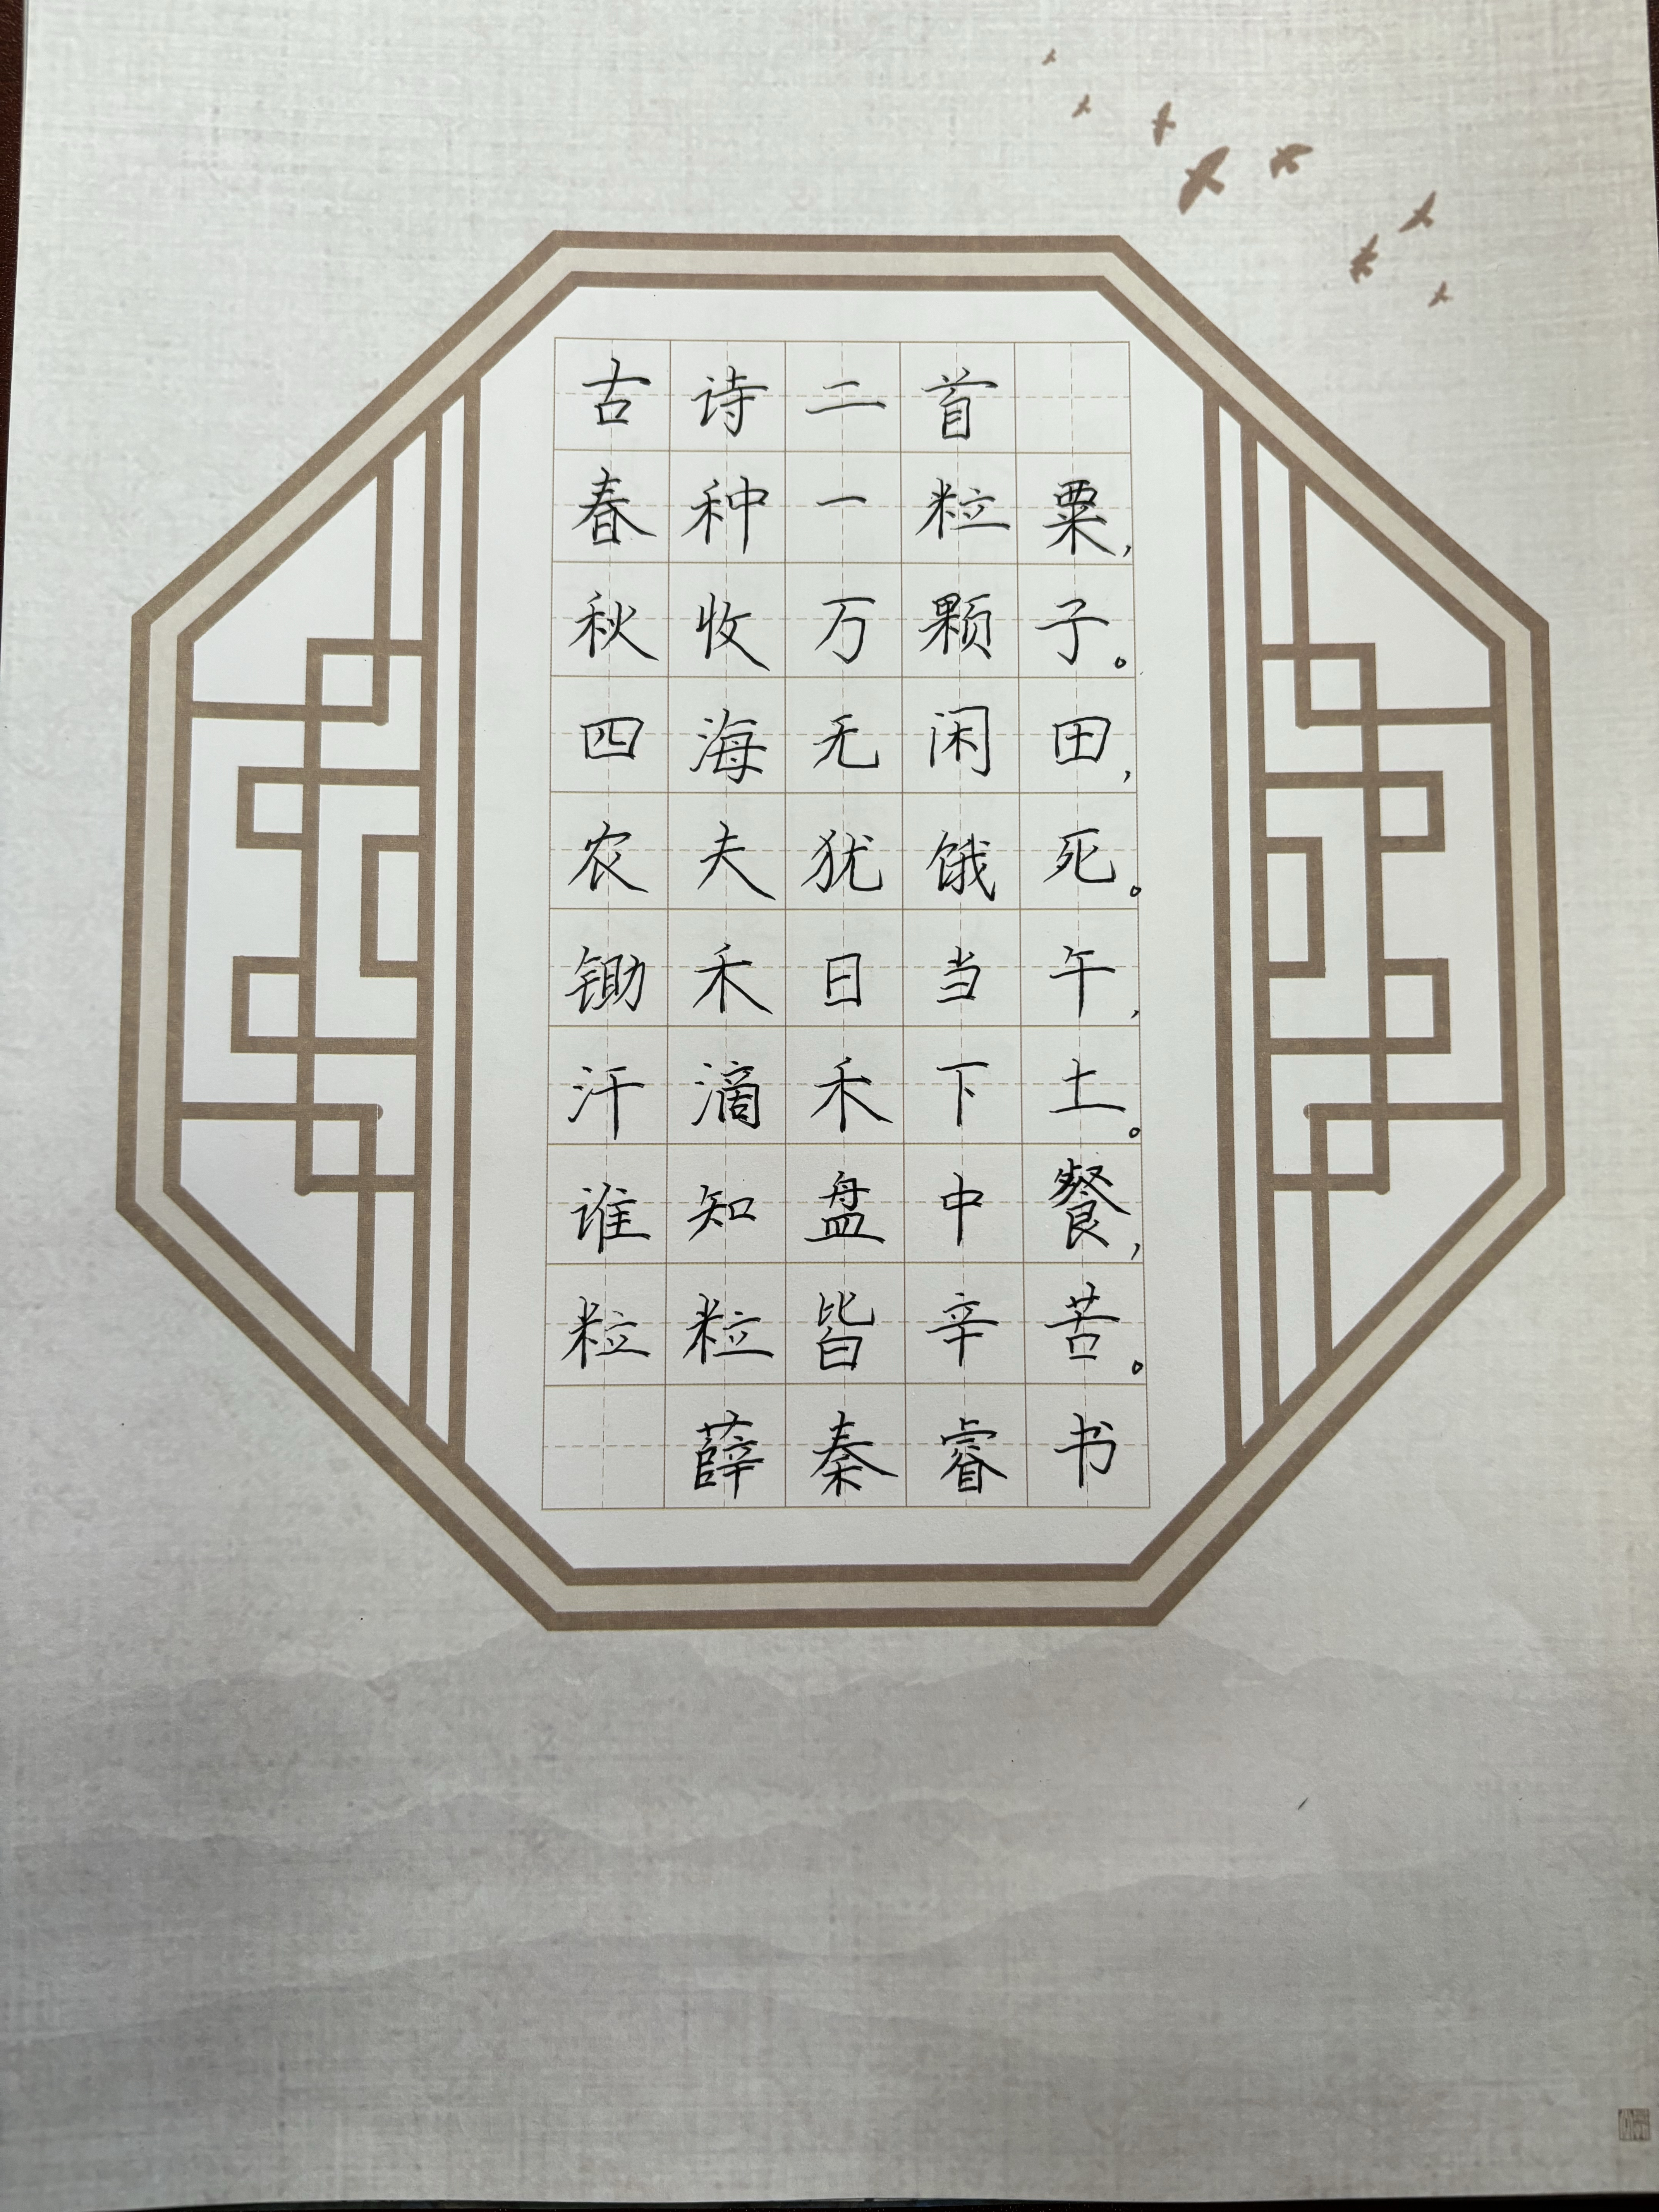 古诗二首
春种一粒粟，
秋收万颗子。
四海无闲田，
农夫犹饿死。
锄禾日当午，
汗滴禾下土。
谁知盘中餐，
粒粒皆辛苦。
薛秦睿书